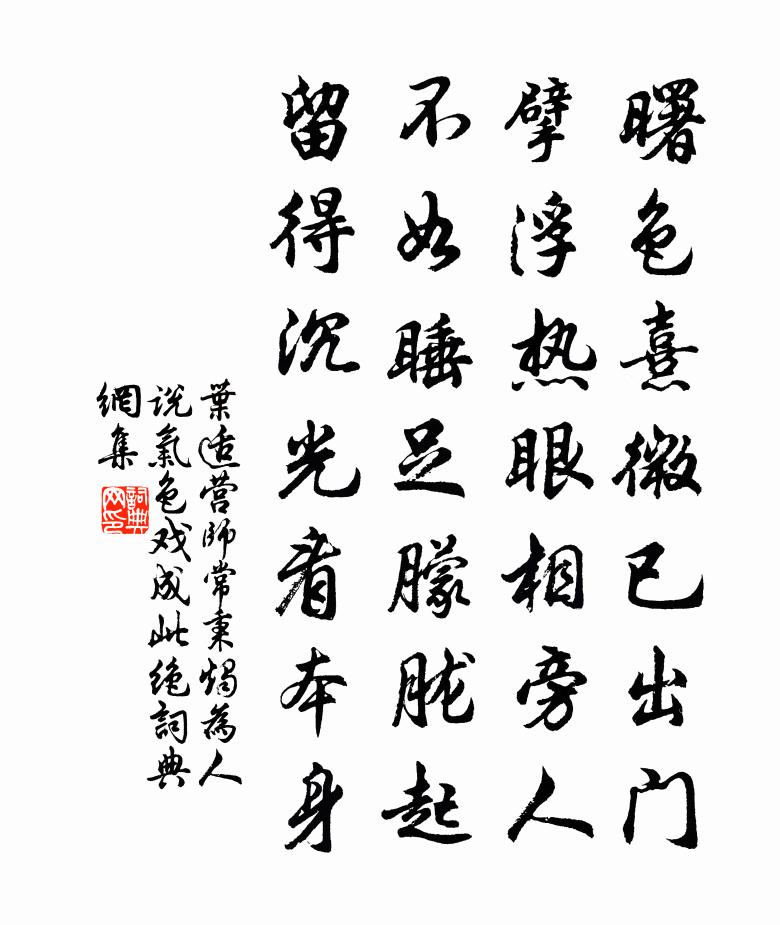 曙色熹微已出门
擘浮热眼相旁人
不如睡足朦胧起
留得沉光看本身
葉适营師常秉燭為人
説氣色戏成此绝詞典
網集
詞典网印